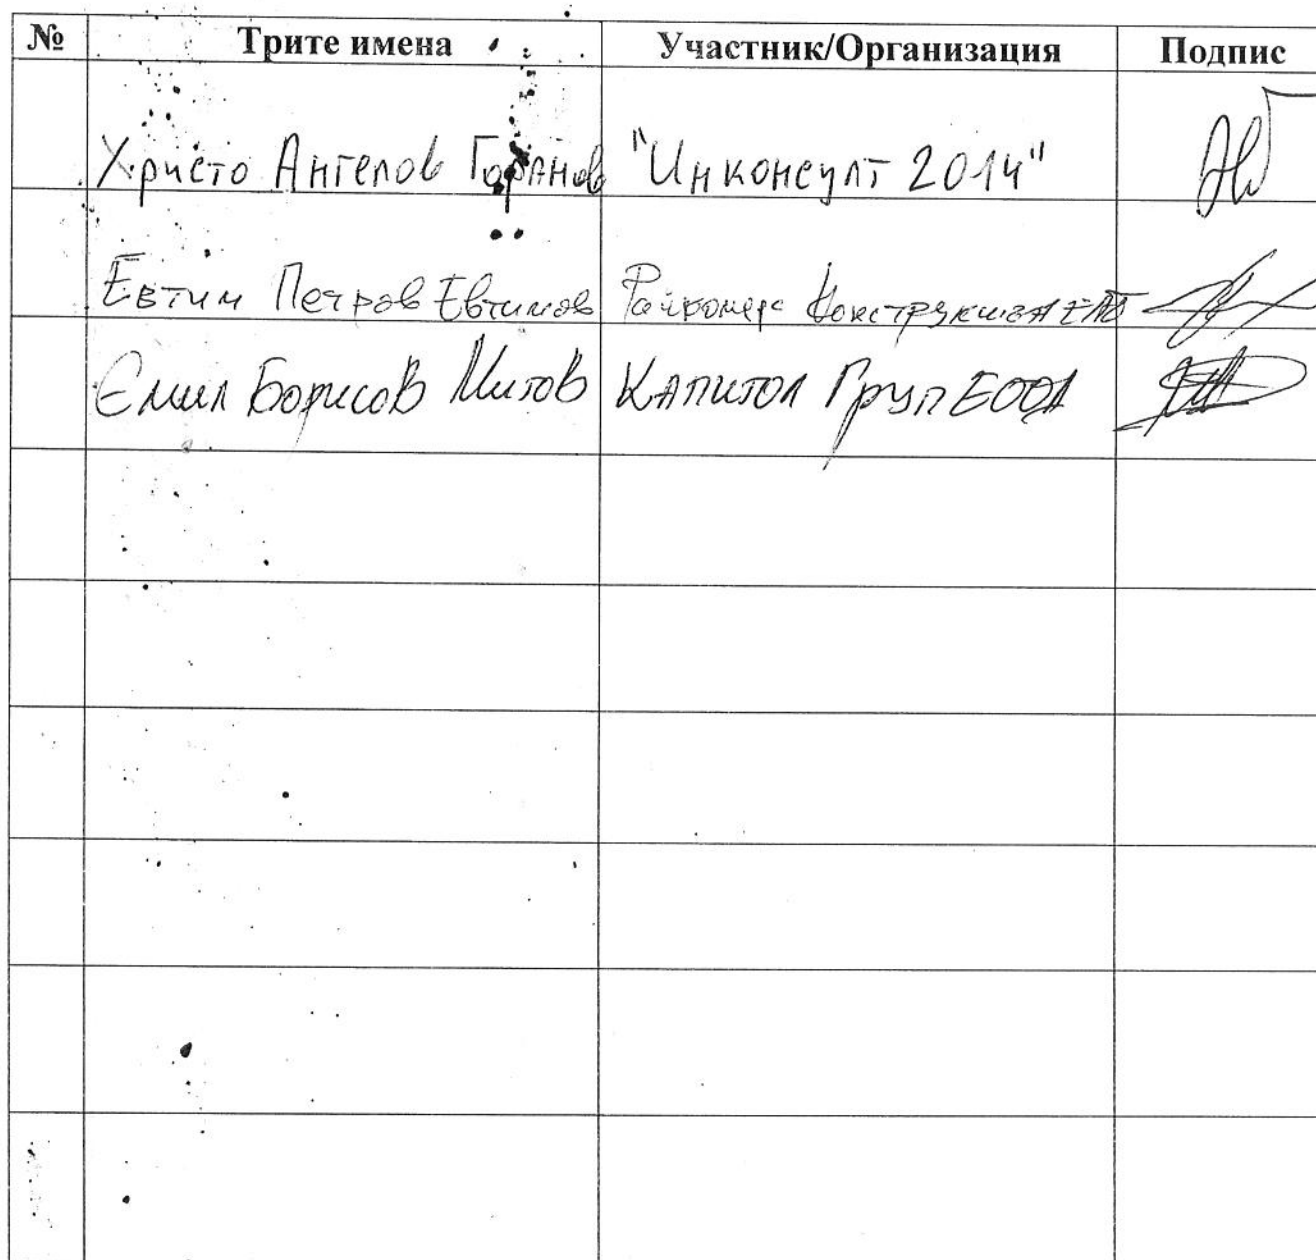 № Трите имена Участник/Организация Подпис
Христо Ангелов Горанов "Инконсулт 2014"
Евтим Петров Евтимов Райкомерс Конструкшън ЕАД
Емил Борисов Митов Капитол Груп ЕООД